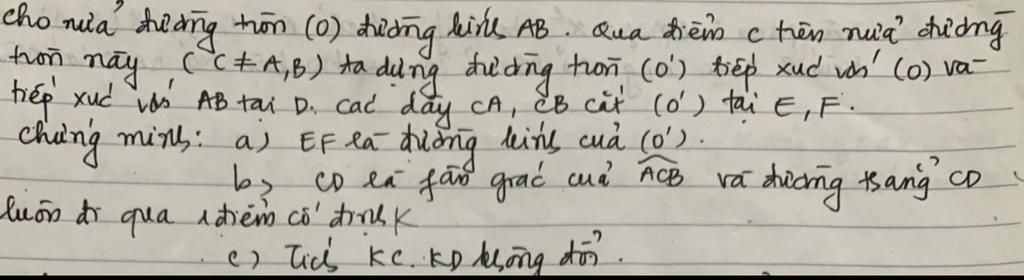 cho nửa đường tròn (O) đường kính AB. Qua điểm C trên nửa đường
tròn này ( C ≠ A,B) ta dựng đường tròn (O') tiếp xúc với (O) và
tiếp xúc với AB tại D. các dây CA, CB cắt (O') tại E, F.
chứng minh: a) EF là đường kính của (O').
b, CD là phân giác của ACB và đường thẳng CD
luôn đi qua 1 điểm cố định K
c) Tích KC. KD không đổi.